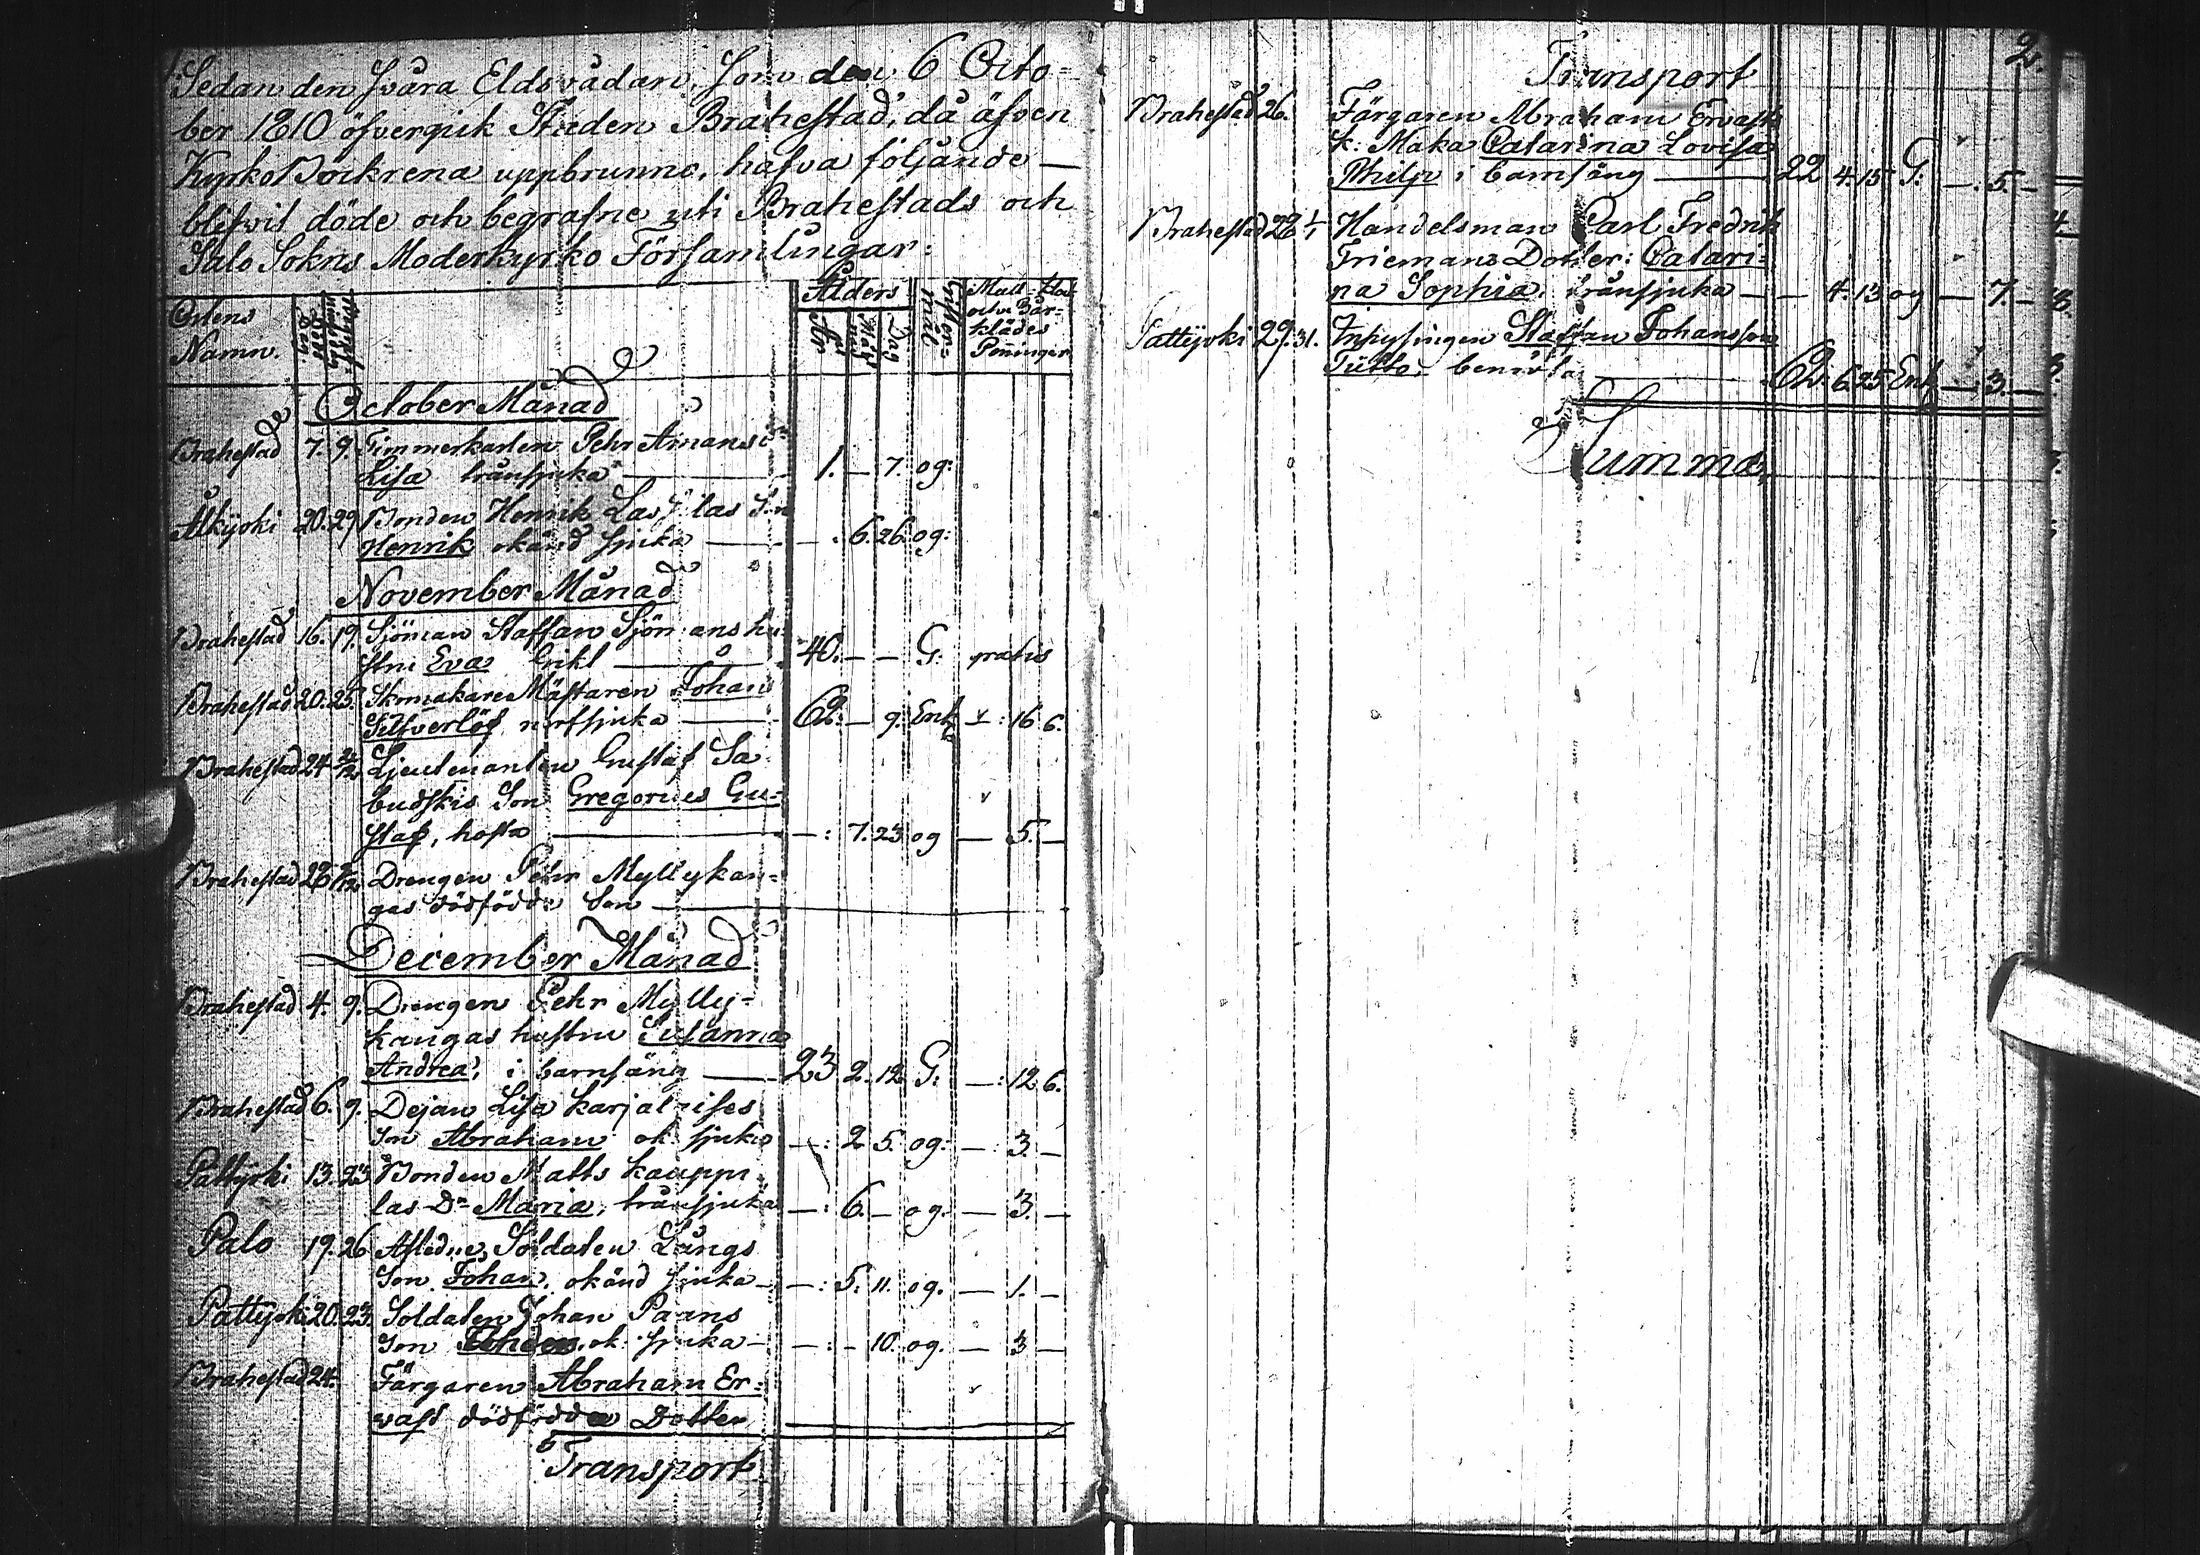 1.
Sedan den svåra Eldsvådan, som den 6 Octo=
ber 1810 öfvergick Staden Brahestad, då äfven
Kyrko Böckrena uppbrunno, hafva följande —
blifvit döde och begrafne uti Brahestads och
Salo Sokns Moderkyrko Församlingar:
Ortens Namn. Ålders Mull- och Bår-klädes Penningar
År Dag
October Månad
Brahestad 7. 9. Timmerkarlen Pehr Amans
Lisa tränsjuka — 1. — 7. og:
Alkijoki 20. 29 Bonden Henrik Lassilas Son
Henrik okänd sjuka — — : 6. 26. og:
November Månad
Brahestad 16. 19. Sjöman Staffan Sjömans hu-
stru Eva Gikt — 40. — — G. gratis
Brahestad 20. 25. Skomakare Mästaren Johan
Silfverlöf nerfsjuka — 62: — 9. Enk — : 16. 6.
Brahestad 24 2/12 Ljeutenanten Gustaf Sa-
budskis Son Gregorius Gu=
staf, hosta — — : 7. 23 og — 5. —
Brahestad 28 9/12 Drengen Pehr Myllykan=
gas dödfödde Son —
December Månad
Brahestad 4. 9. Drengen Pehr Mylly=
kangas hustru Susanna
Andrea, i barnsäng — 23 2. 12 G: — : 12 6.
Brahestad 6. 9. Dejan Lisa Karjalaises
Son Abraham ok. sjuka — : 2 5. og: — 3. —
Pattijoki 13. 23 Bonden Matts Kauppi
las Dr Maria, tränsjuka — : 6. — og. — 3. —
Palo 19. 26 Afledne Soldaten Långs
Son Johan, okänd sjuka — — : 5. 11. og. — 1. —
Pattijoki 20. 23. Soldaten Johan Paans
Son ok. sjuka — — : — 10. og. — 3 —
Brahestad 24. Färgaren Abraham Er=
vast dödfödda Dotter
Transport
2.
Transport
Brahestad 26. Färgaren Abraham Ervast
k: Maka Catarina Lovisa
Philp i barnsäng — 22 4. 15 G: — : 5. —
Brahestad 28 1/1 Handelsman Carl Fredrik
Friemans Dotter: Catari=
na Sophia, tränsjuka — — 4. 13 og — 7. —
Pattijoki 29. 31. Inhysingen Staffan Johansson
Tütto, benröta — 62: 6. 25 Enk — : 3. —
Summa